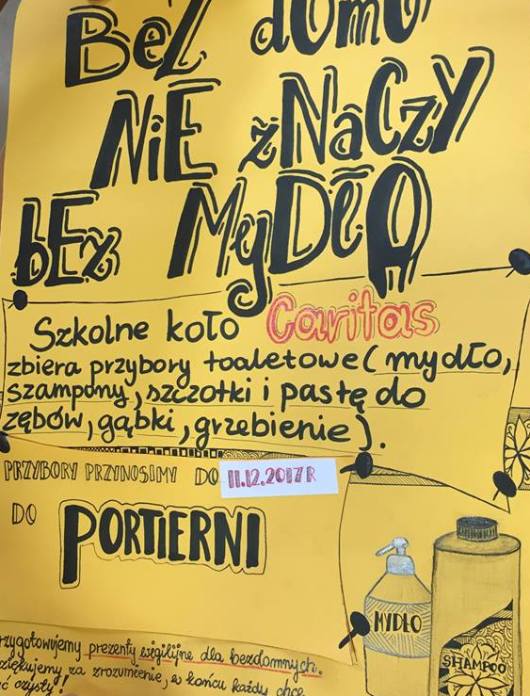 BeZ domu
NiE zNaCzY
bEz MyDŁA
Szkolne koło Caritas
zbiera przybory toaletowe (mydło,
szampony, szczotki i pastę do
zębów, gąbki, grzebienie).
PRZYBORY PRZYNOSIMY DO 11.12.2017 R
DO PORTIERNI
MYDŁO
SHAMPOO
przygotowujemy prezenty wigilijne dla bezdomnych.
Dziękujemy za zrozumienie, w końcu każdy chce
być czysty!